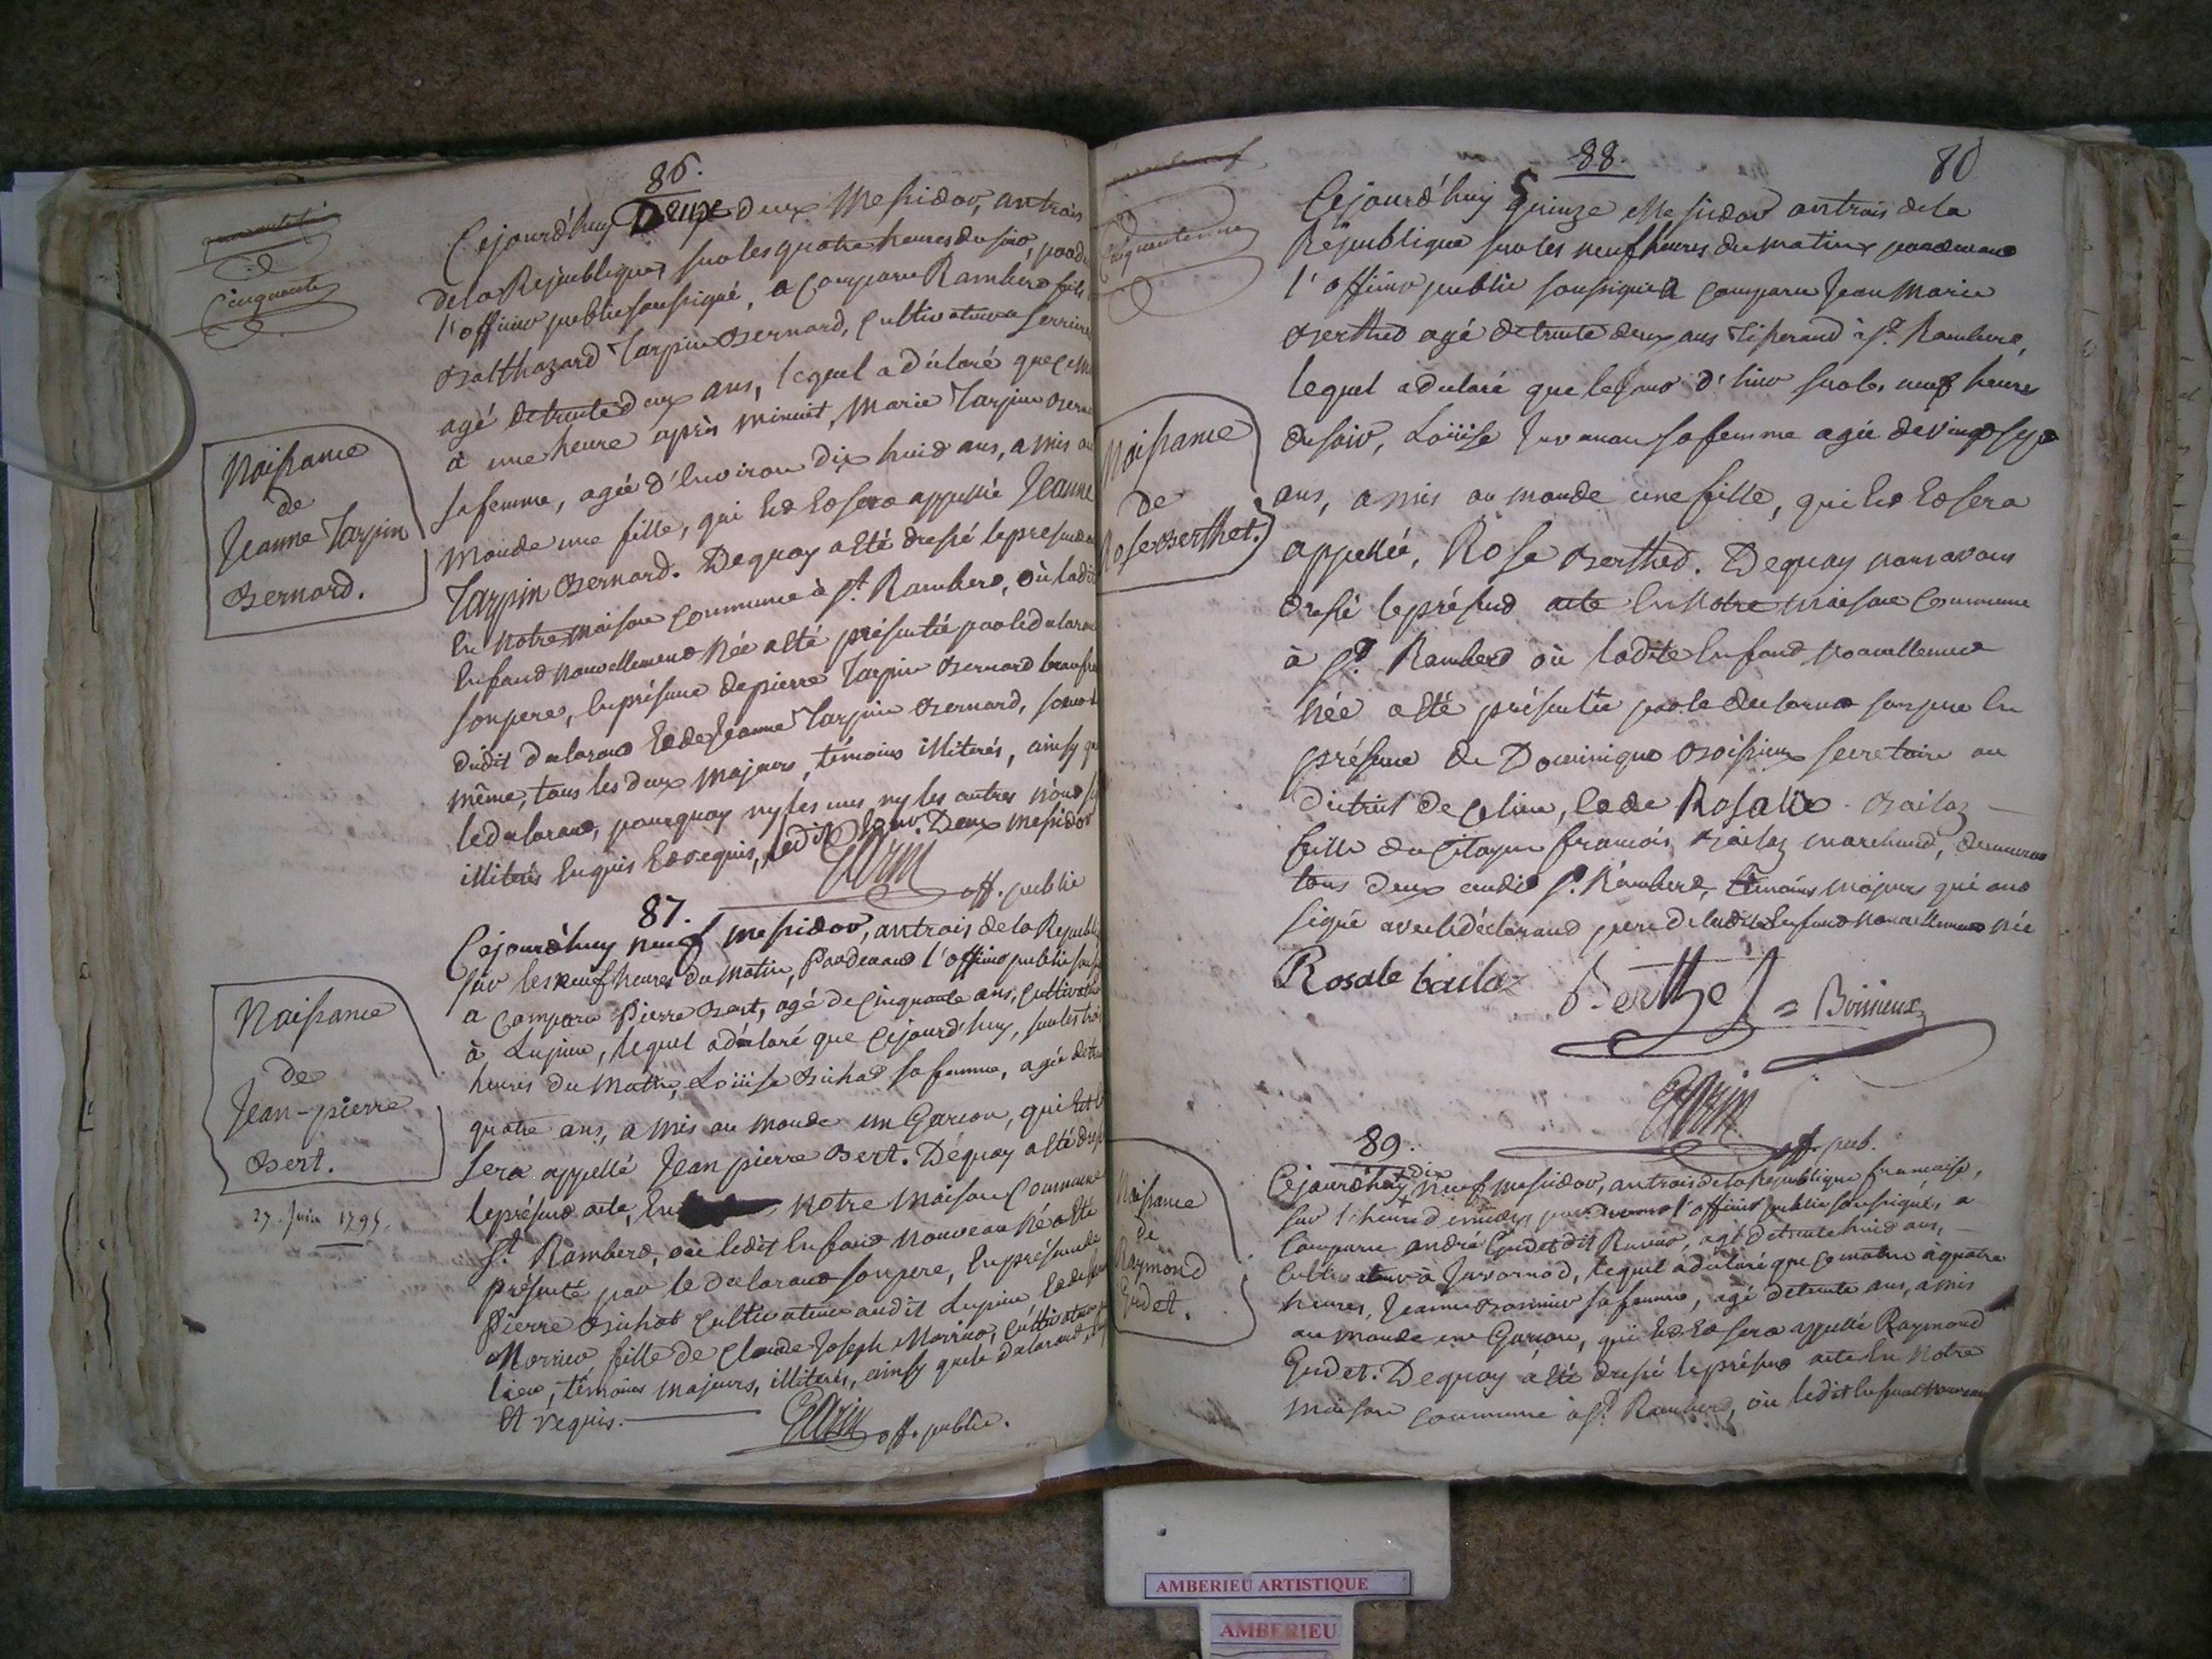 86.
Cinquante
Cejourd'huy Deux deux Messidor, an trois
de la Republique, sur les quatre heures du soir, pard
l'officier public soussigné, a Comparu Rambert fils
Balthazard Tarpin Bernard, Cultivateur a Serriere
agé de trente deux ans, lequel a déclaré que ce
à une heure après minuit, Marie Tarpin Bern
sa femme, agée d'Environ dix huit ans, a mis au
Monde une fille, qui Est Et sera appellée Jeanne
Tarpin Bernard. Dequoy a Eté dressé le present
En Notre Maison commune à St. Rambert, où ladi
Enfant nouvellement Née a Eté présentée par le declarant
son pere, En présence de pierre Tarpin Bernard beaufre
dudit declarant Et de Jeanne Tarpin Bernard,
même, tous les deux Majeurs, témoins illiterés, ainsy q
le declarant, pourquoy ny les uns ny les autres n'ont
illiterés Enquis Et requis, Ledit Jour Deux messidor
off. public
Naissance
de
Jeanne Tarpin
Bernard.
87.
Cejourd'huy neuf messidor, an trois de la Republi
sur les neuf heures du Matin, Pardevant l'officier public sous
a Comparu Pierre Bert, agé de Cinquante ans, Cultivate
à Lupieu, lequel a déclaré que Cejourd'huy, sur les tro
heures du Matin, Loüise Bichat sa femme, agée de
quatre ans, a Mis au Monde un Garcon, qui Est
sera appellé Jean pierre Bert. Déquoy a Eté dress
le présent acte, En Notre Maison Commune
St. Rambert, où ledit Enfant Nouveau Né a Eté
présenté par le declarant son pere, En présence de
Pierre Bichat Cultivateur audit Lupieu Et de
fille de Claude Joseph Cultivateur
Lieu, témoins majeurs, illiterés, ainsy que le declarant,
Et requis.
off. public.
Naissance
de
Jean-pierre
Bert.
27. Juin 1795.
88.
80
Cejourd'huy quinze Messidor an trois de la
Republique sur les neuf heures du Matin pardevant
l'officier public soussigné a Comparu Jean Marie
Berthet agé de trente deux ans Tisserand à St. Rambert,
lequel a declaré que le jour d'hier sur les neuf heures
du soir, Loüise sa femme agée de vingt sept
ans, a mis au monde une fille, qui Est Et sera
appellée, Rose Berthet. Dequoy nous avons
dressé le présent acte En Notre maison Commune
à St. Rambert où ladite Enfant Nouvellement
Née a Eté présentée par le declarant son pere En
présence de Dominique Boissieux secretaire au
district de Et de Rosalie Bailaz
fille du Citoyen francois Bailaz marchand, demeurant
tous deux audit St. Rambert, témoins majeurs qui ont
signé avec le déclarant pere de ladite Enfant nouvellement née
Rosale baila Berthet Boissieux
off. pub.
Naissance
de
Rose Berthet.
89.
Cejourd'huy dix neuf messidor, an trois de la République francaise,
sur l'heure de midy, pardevant l'officier public soussigné, a
Comparu andré Gudet dit agé de trente huit ans,
Cultivateur à Javornod, lequel a déclaré que Ce matin a quatre
heures, Jeanne sa femme, agé de trente ans, a mis
au monde un Garcon, qui Est Et sera appellé Raymond
Gudet. Dequoy a Eté dressé le présent acte En Notre
maison commune à St. Rambert, où ledit Enfant nouveau
Naissance
de
Raymond
Gudet.
AMBERIEU ARTISTIQUE
AMBERIEU